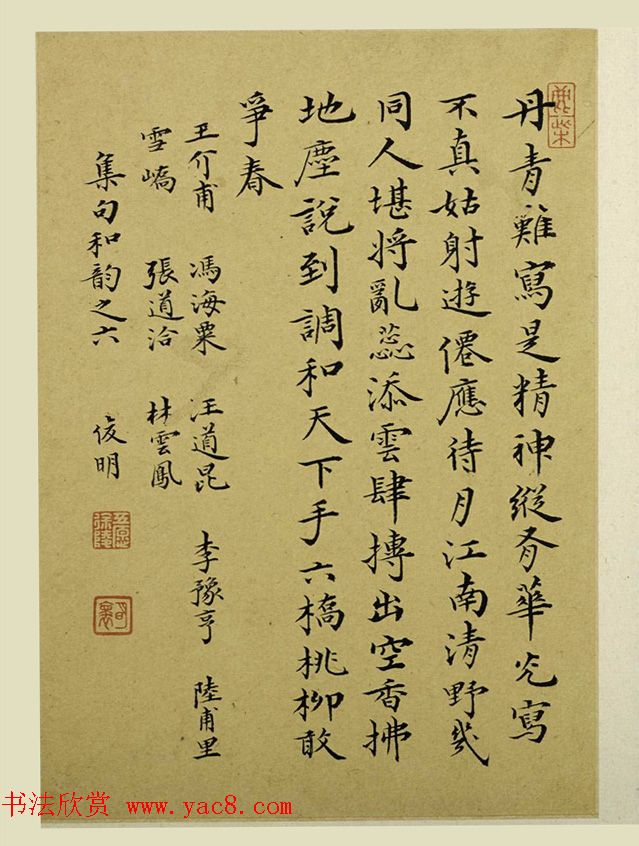 丹青難寫是精神縱有華光寫
不真姑射遊僊應待月江南清野幾
同人堪將亂蕊添雲肆摶出空香拂
地塵說到調和天下手六橋桃柳敢
爭春
王介甫 馮海粟 汪道昆 李豫亨 陸甫里
雪嶠 張道洽 林雲鳳
集句和韵之六 俊明
书法欣赏 www.yac8.com